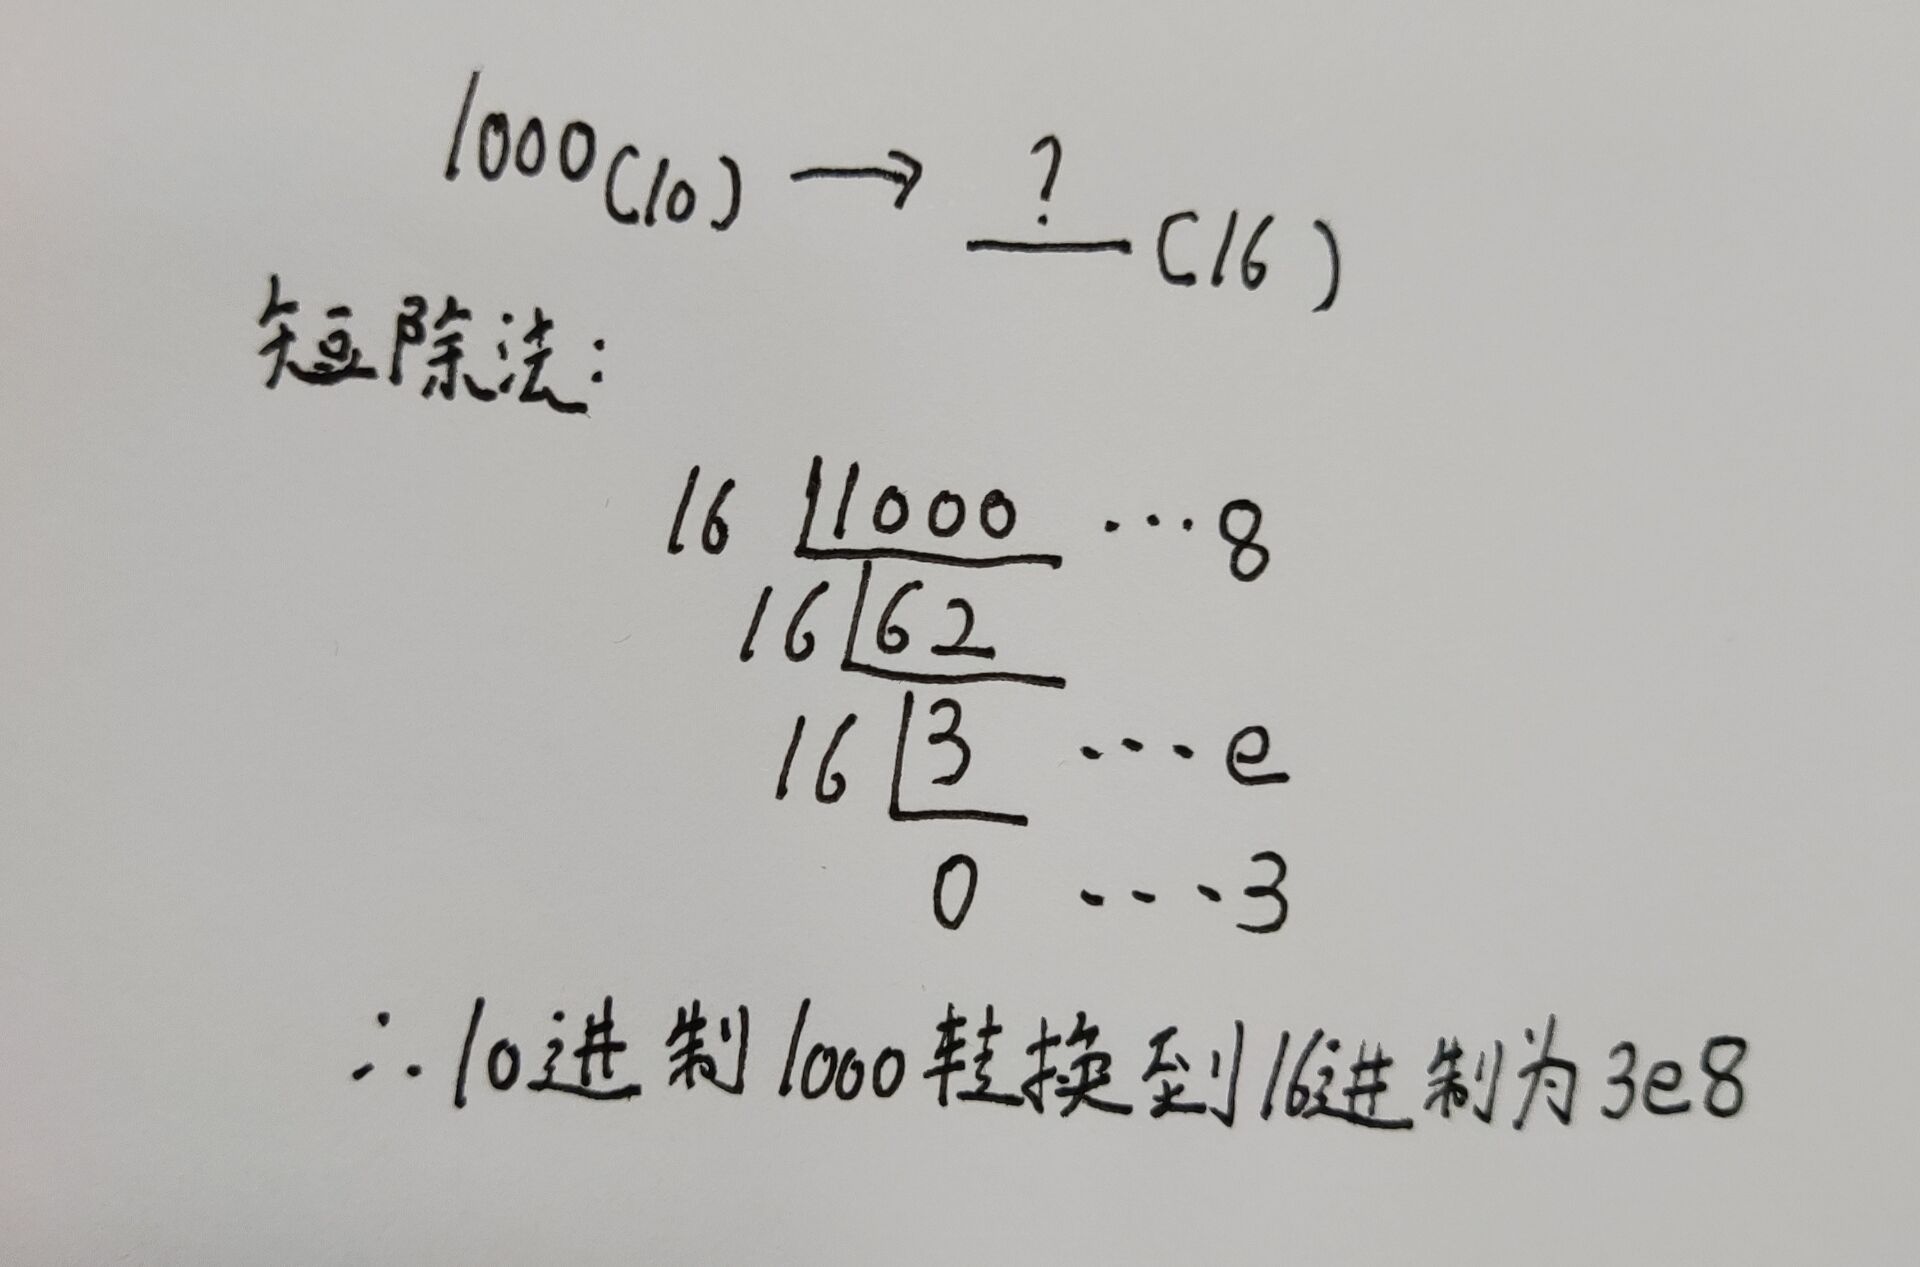 1000(10) → ?(16)
短除法:
16 1000 ...8
16 62
16 3 ...e
0 ...3
∴10进制1000转换到16进制为3e8